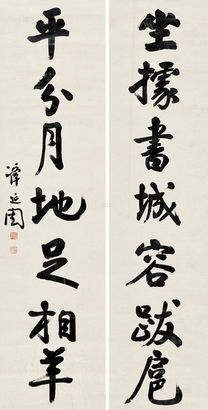 坐據書城容跋扈
平分月地足相羊
譚延闓